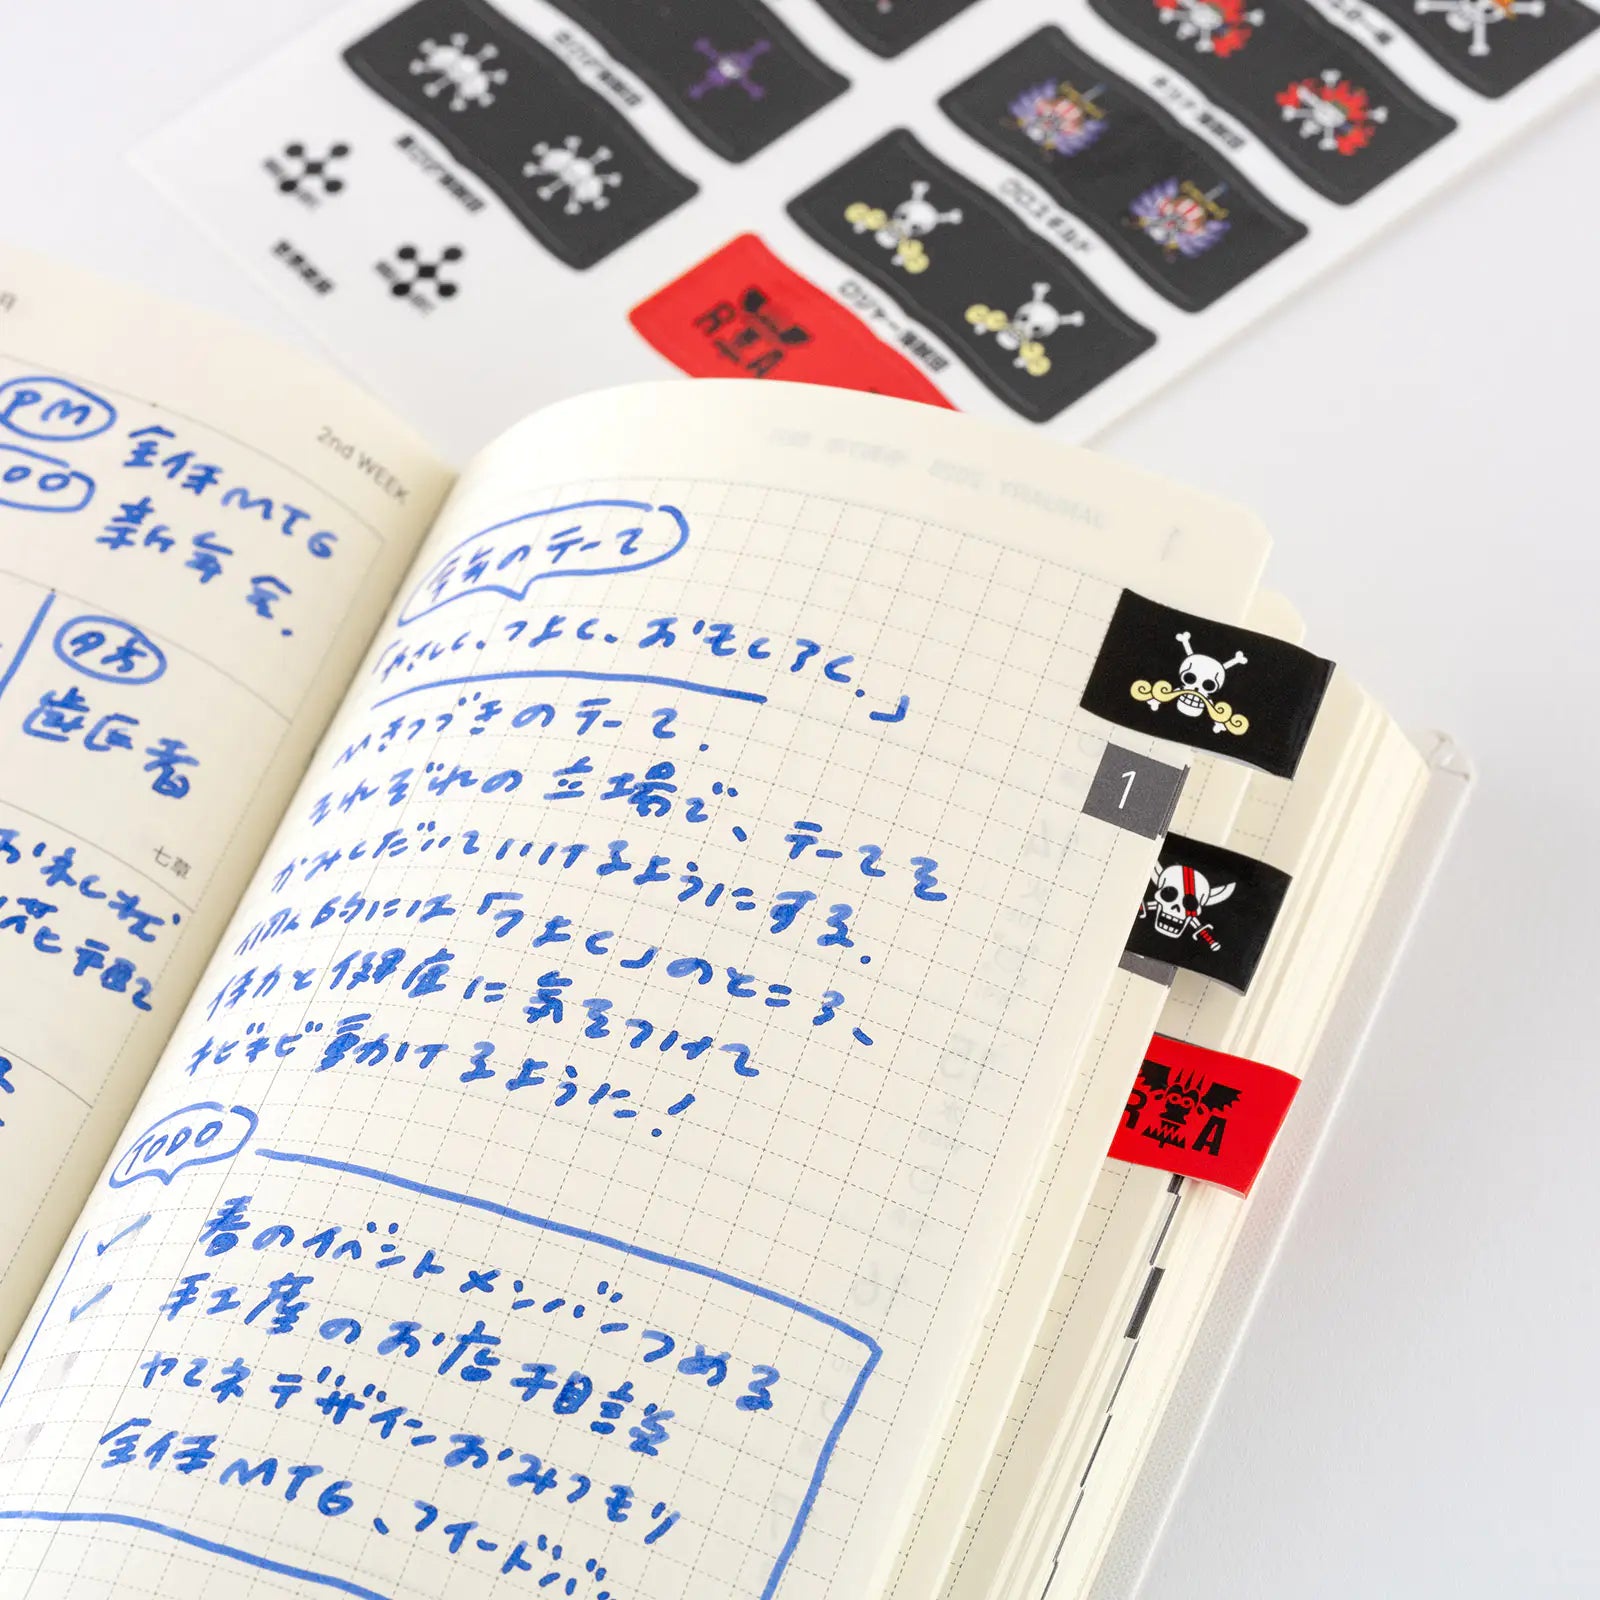 黒ひげ海賊団
ロジャー海賊団
クロスギルド
キッド海賊団
世界政府
R A
2nd WEEK
PM 全体MTG
00 新年会.
夕方
歯医者
七草
今年のテーマ
「やさしく、つよく、おもしろく.」
Mきつづきのテーマ.
それぞれの立場で、テーマを
かみくだいていけるようにする.
個人的には「つよく」のところ、
体力と健康に気をつけて
キビキビ動けるように!
1
R A
TODO
✓ 春のイベントメンバーつめる
✓ 手土産のお店相談
ヤマネデザインおみつもり
全体MTG、フィードバ